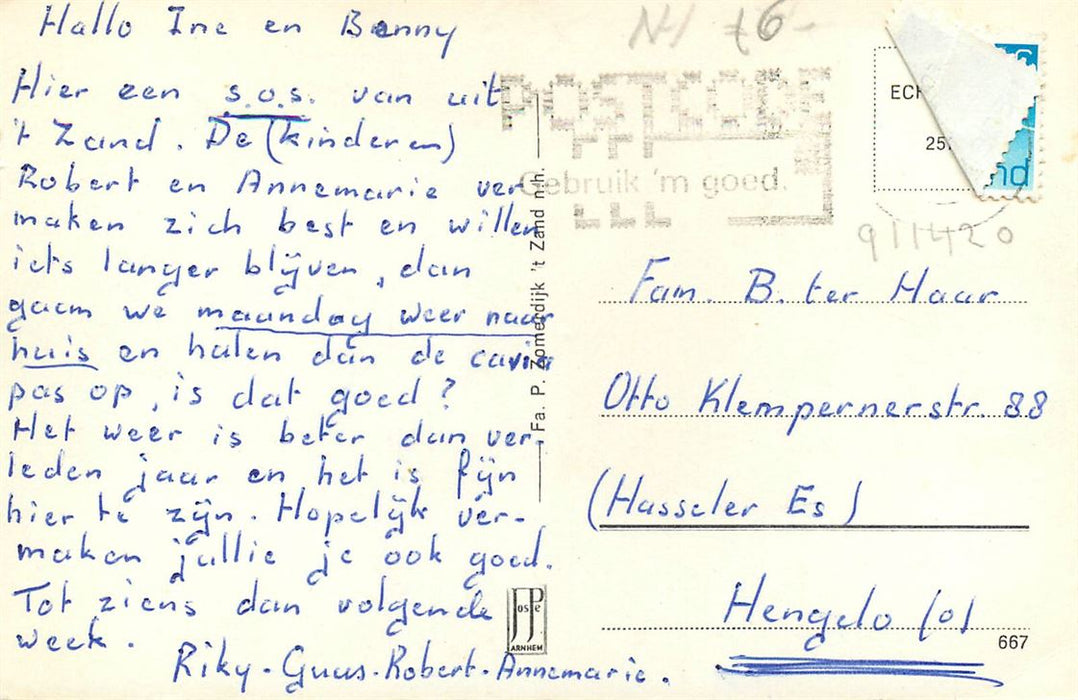 Hallo Ine en Benny
Hier een s.o.s. van uit
't Zand. De (kinderen)
Robert en Annemarie ver-
maken zich best en willen
iets langer blijven, dan
gaan we maandag weer naar
huis en halen dan de cavia
pas op, is dat goed?
Het weer is beter dan ver-
leden jaar en het is fijn
hier te zijn. Hopelijk ver-
maken jullie je ook goed.
Tot ziens dan volgende
week.
Riky-Guus-Robert-Annemarie.
Fa. P. Zomerdijk 't Zand n.h.
JosPé
ARNHEM
NH 76-
POSTCODE
Gebruik 'm goed.
ECH
25
nd
911420
Fam. B. ter Haar
Otto Klempernerstr. 88
(Hasseler Es)
Hengelo (o)
667